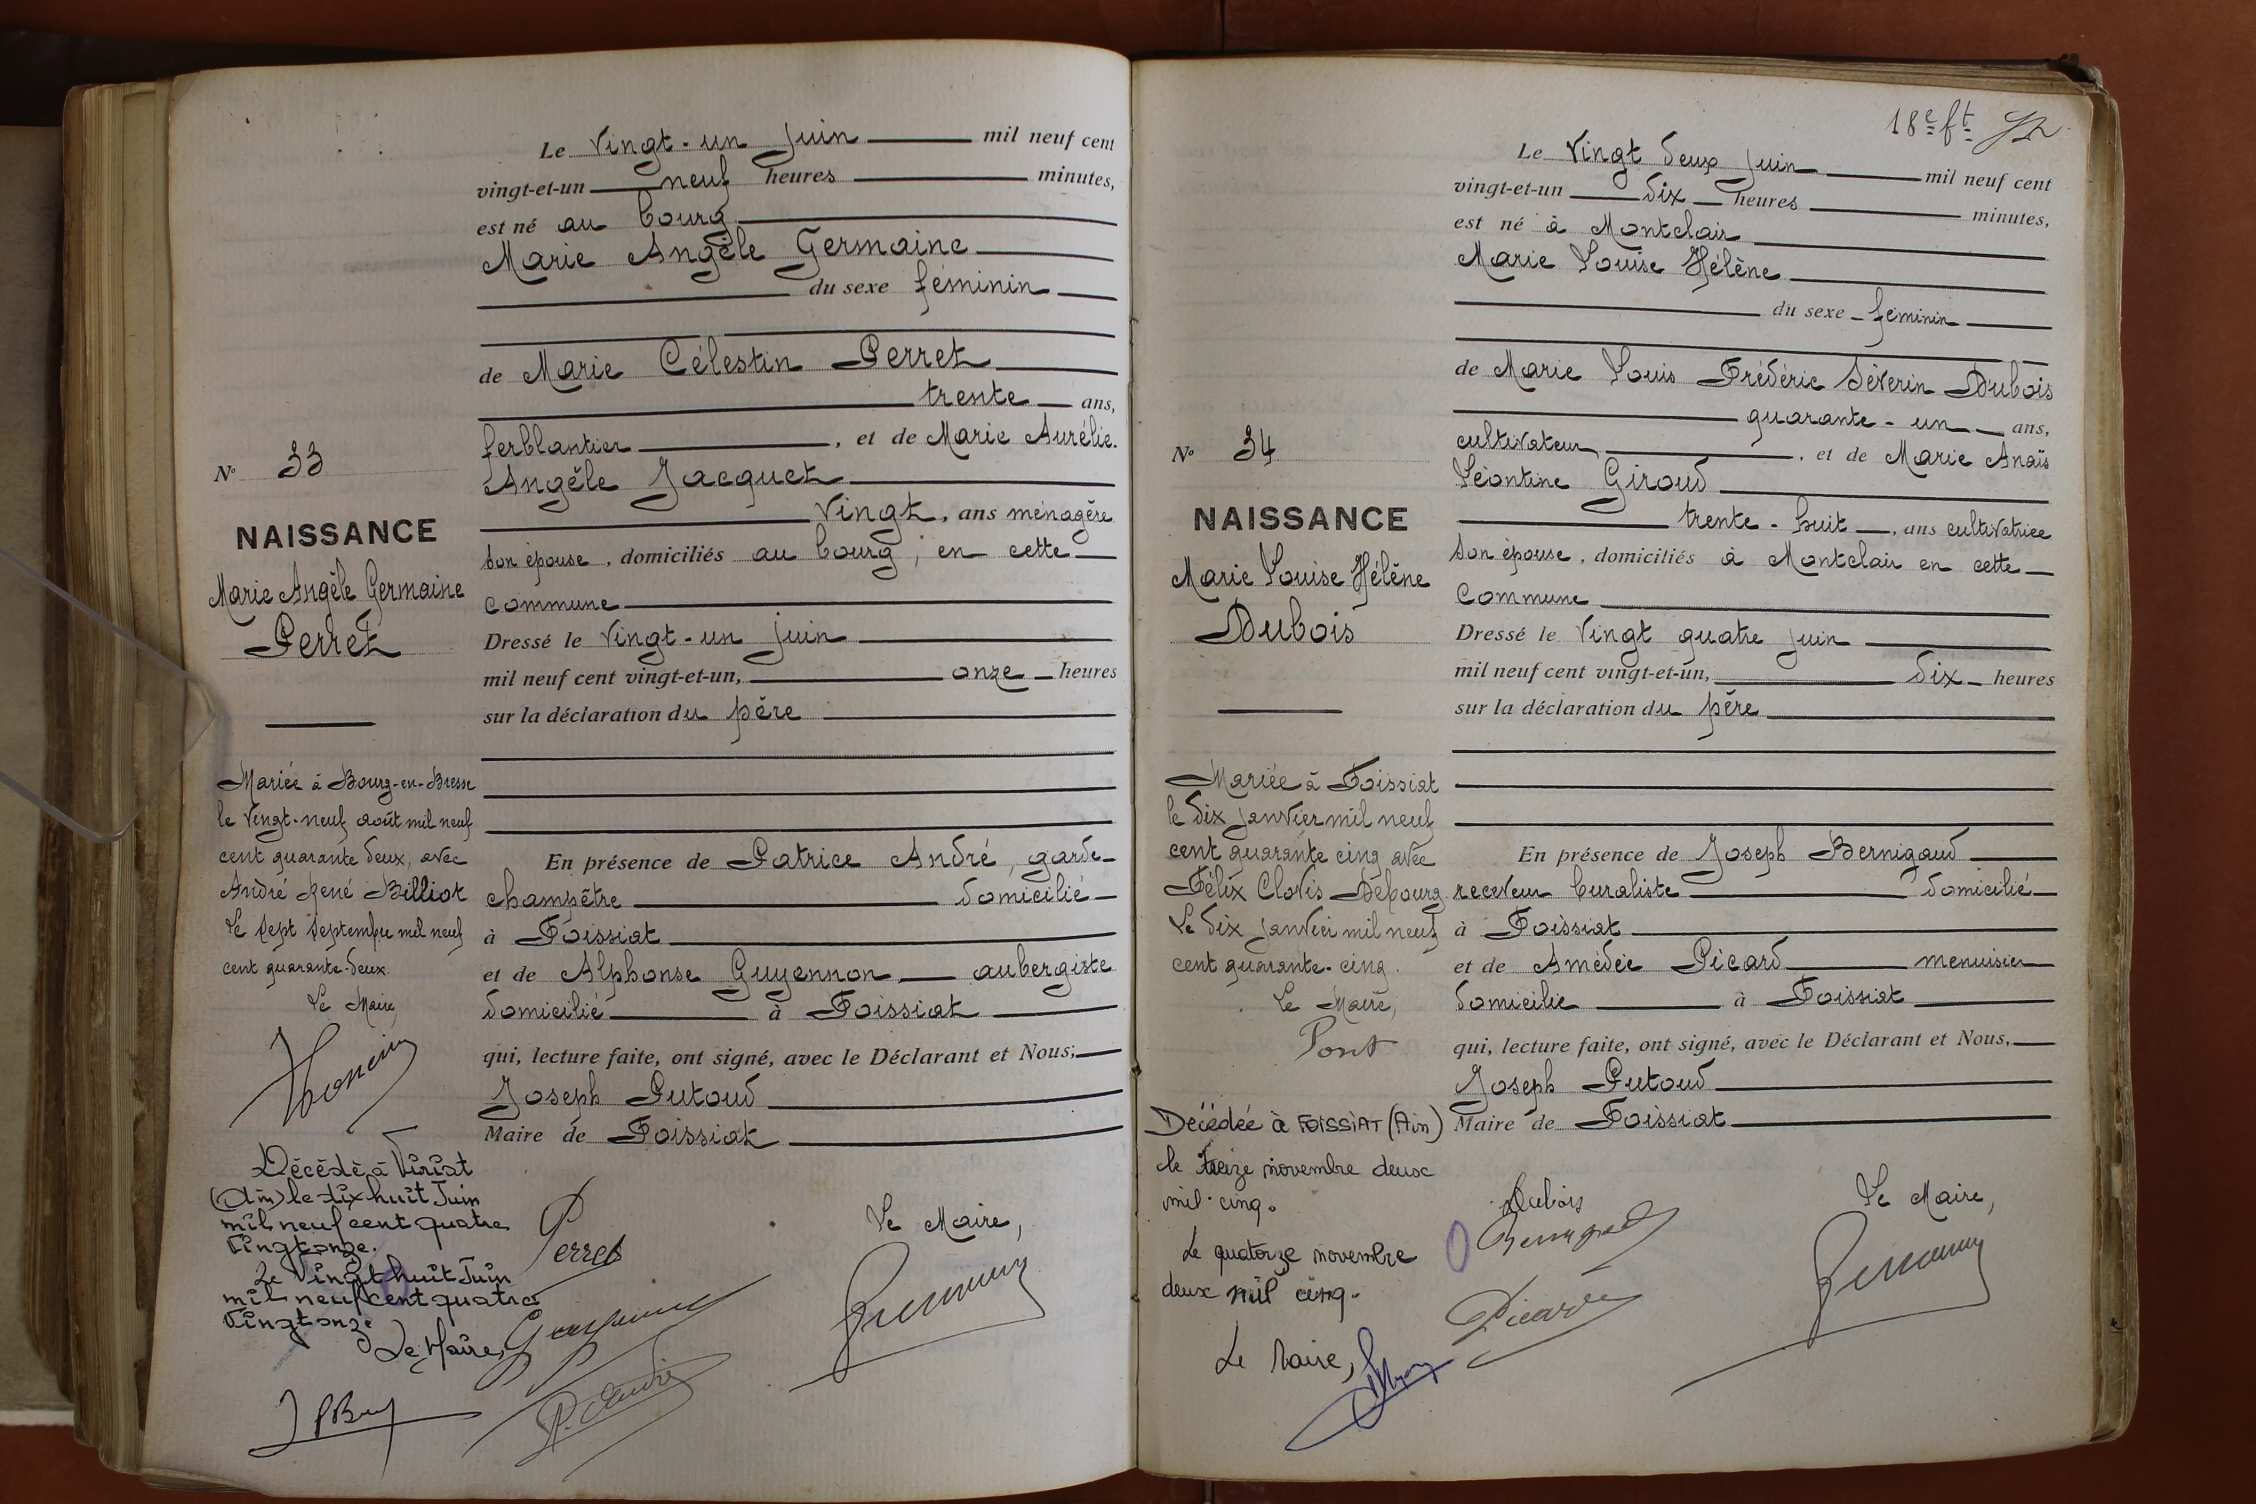 Le vingt-un juin mil neuf cent
vingt-et-un neuf heures minutes,
est né au bourg
Marie Angèle Germaine
du sexe féminin
de Marie Célestin Perret
trente ans,
ferblantier, et de Marie Aurélie
Angèle Jacquet
vingt, ans ménagère
son épouse, domiciliés au bourg, en cette
commune
Dressé le vingt-un juin
mil neuf cent vingt-et-un, onze heures
sur la déclaration du père
En présence de Patrice André, garde-
champêtre domicilié
à Foissiat
et de Alphonse Guyennon aubergiste
domicilié à Foissiat
qui, lecture faite, ont signé, avec le Déclarant et Nous,
Joseph Putoud
Maire de Foissiat
Le Maire,
Perret
No 33
NAISSANCE
Marie Angèle Germaine
Perret
Mariée à Bourg-en-Bresse
le vingt-neuf août mil neuf
cent quarante deux, avec
André René Billiot
Le sept septembre mil neuf
cent quarante-deux.
Le Maire,
Décédé à Viriat
(Ain) le dix huit Juin
mil neuf cent quatre
vingt onze.
Le vingt huit Juin
mil neuf cent quatre
vingt onze
Le Maire,
18e ft
Le vingt deux juin mil neuf cent
vingt-et-un dix heures minutes,
est né à Montclair
Marie Louise Hélène
du sexe féminin
de Marie Louis Frédéric Séverin Dubois
quarante-un ans,
cultivateur, et de Marie Anaïs
Léontine Giroud
trente-huit, ans cultivatrice
son épouse, domiciliés à Montclair en cette
commune
Dressé le vingt quatre juin
mil neuf cent vingt-et-un, dix heures
sur la déclaration du père
En présence de Joseph Bernigaud
receveur buraliste domicilié
à Foissiat
et de Amédée Picard menuisier
domicilié à Foissiat
qui, lecture faite, ont signé, avec le Déclarant et Nous,
Joseph Putoud
Maire de Foissiat
Dubois
Le Maire,
Bernigaud
Picard
No 34
NAISSANCE
Marie Louise Hélène
Dubois
Mariée à Foissiat
le dix janvier mil neuf
cent quarante cinq avec
Félix Clovis Debourg
Le dix janvier mil neuf
cent quarante-cinq.
Le Maire,
Pont
Décédée à FOISSIAT (Ain)
le treize novembre deux
mil cinq.
Le quatorze novembre
deux mil cinq.
Le Maire,